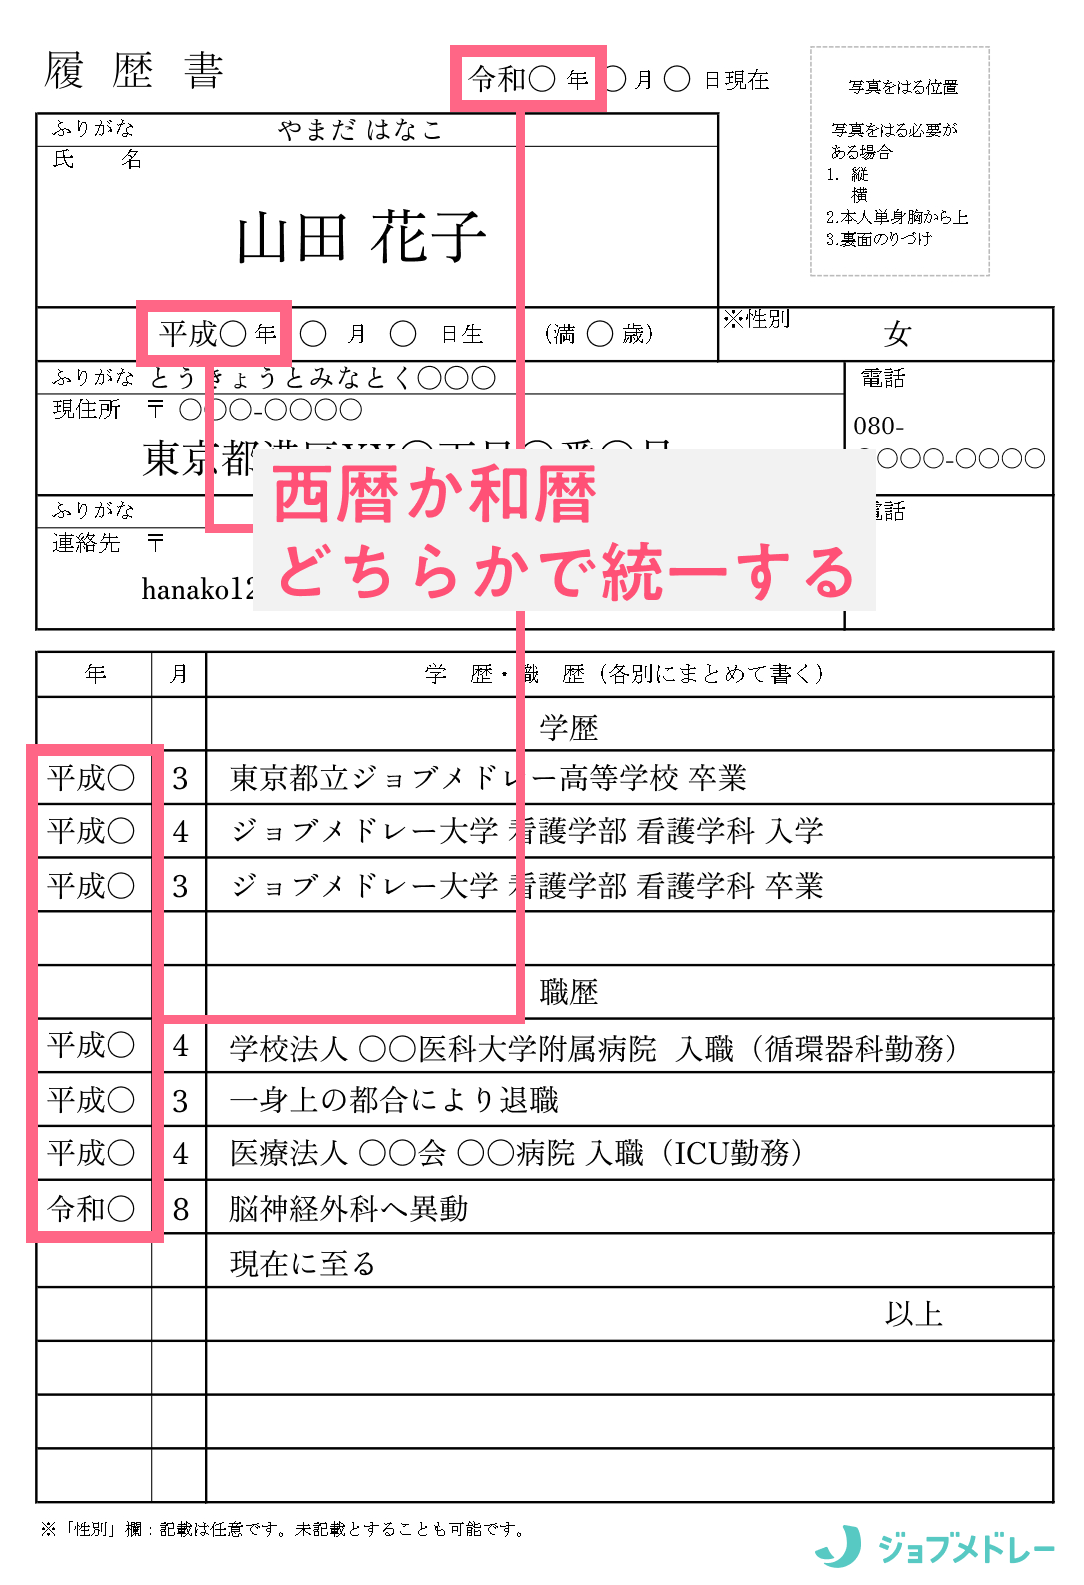 履歴書
令和〇 年 〇 月 〇 日現在
写真をはる位置
写真をはる必要が
ある場合
1. 縦
横
2.本人単身胸から上
3.裏面のりづけ
ふりがな やまだ はなこ
氏 名
山田 花子
平成〇 年 〇 月 〇 日生 (満 〇 歳)
※性別
女
ふりがな とうきょうとみなとく〇〇〇
現住所 〒 〇〇〇-〇〇〇〇
東京都
電話
080-
〇〇〇-〇〇〇〇
西暦か和暦
どちらかで統一する
ふりがな
連絡先 〒
電話
年 月 学 歴・職 歴 (各別にまとめて書く)
学歴
平成〇 3 東京都立ジョブメドレー高等学校 卒業
平成〇 4 ジョブメドレー大学 看護学部 看護学科 入学
平成〇 3 ジョブメドレー大学 看護学部 看護学科 卒業
職歴
平成〇 4 学校法人 〇〇医科大学附属病院 入職（循環器科勤務）
平成〇 3 一身上の都合により退職
平成〇 4 医療法人 〇〇会 〇〇病院 入職（ICU勤務）
令和〇 8 脳神経外科へ異動
現在に至る
以上
※「性別」欄：記載は任意です。未記載とすることも可能です。
ジョブメドレー